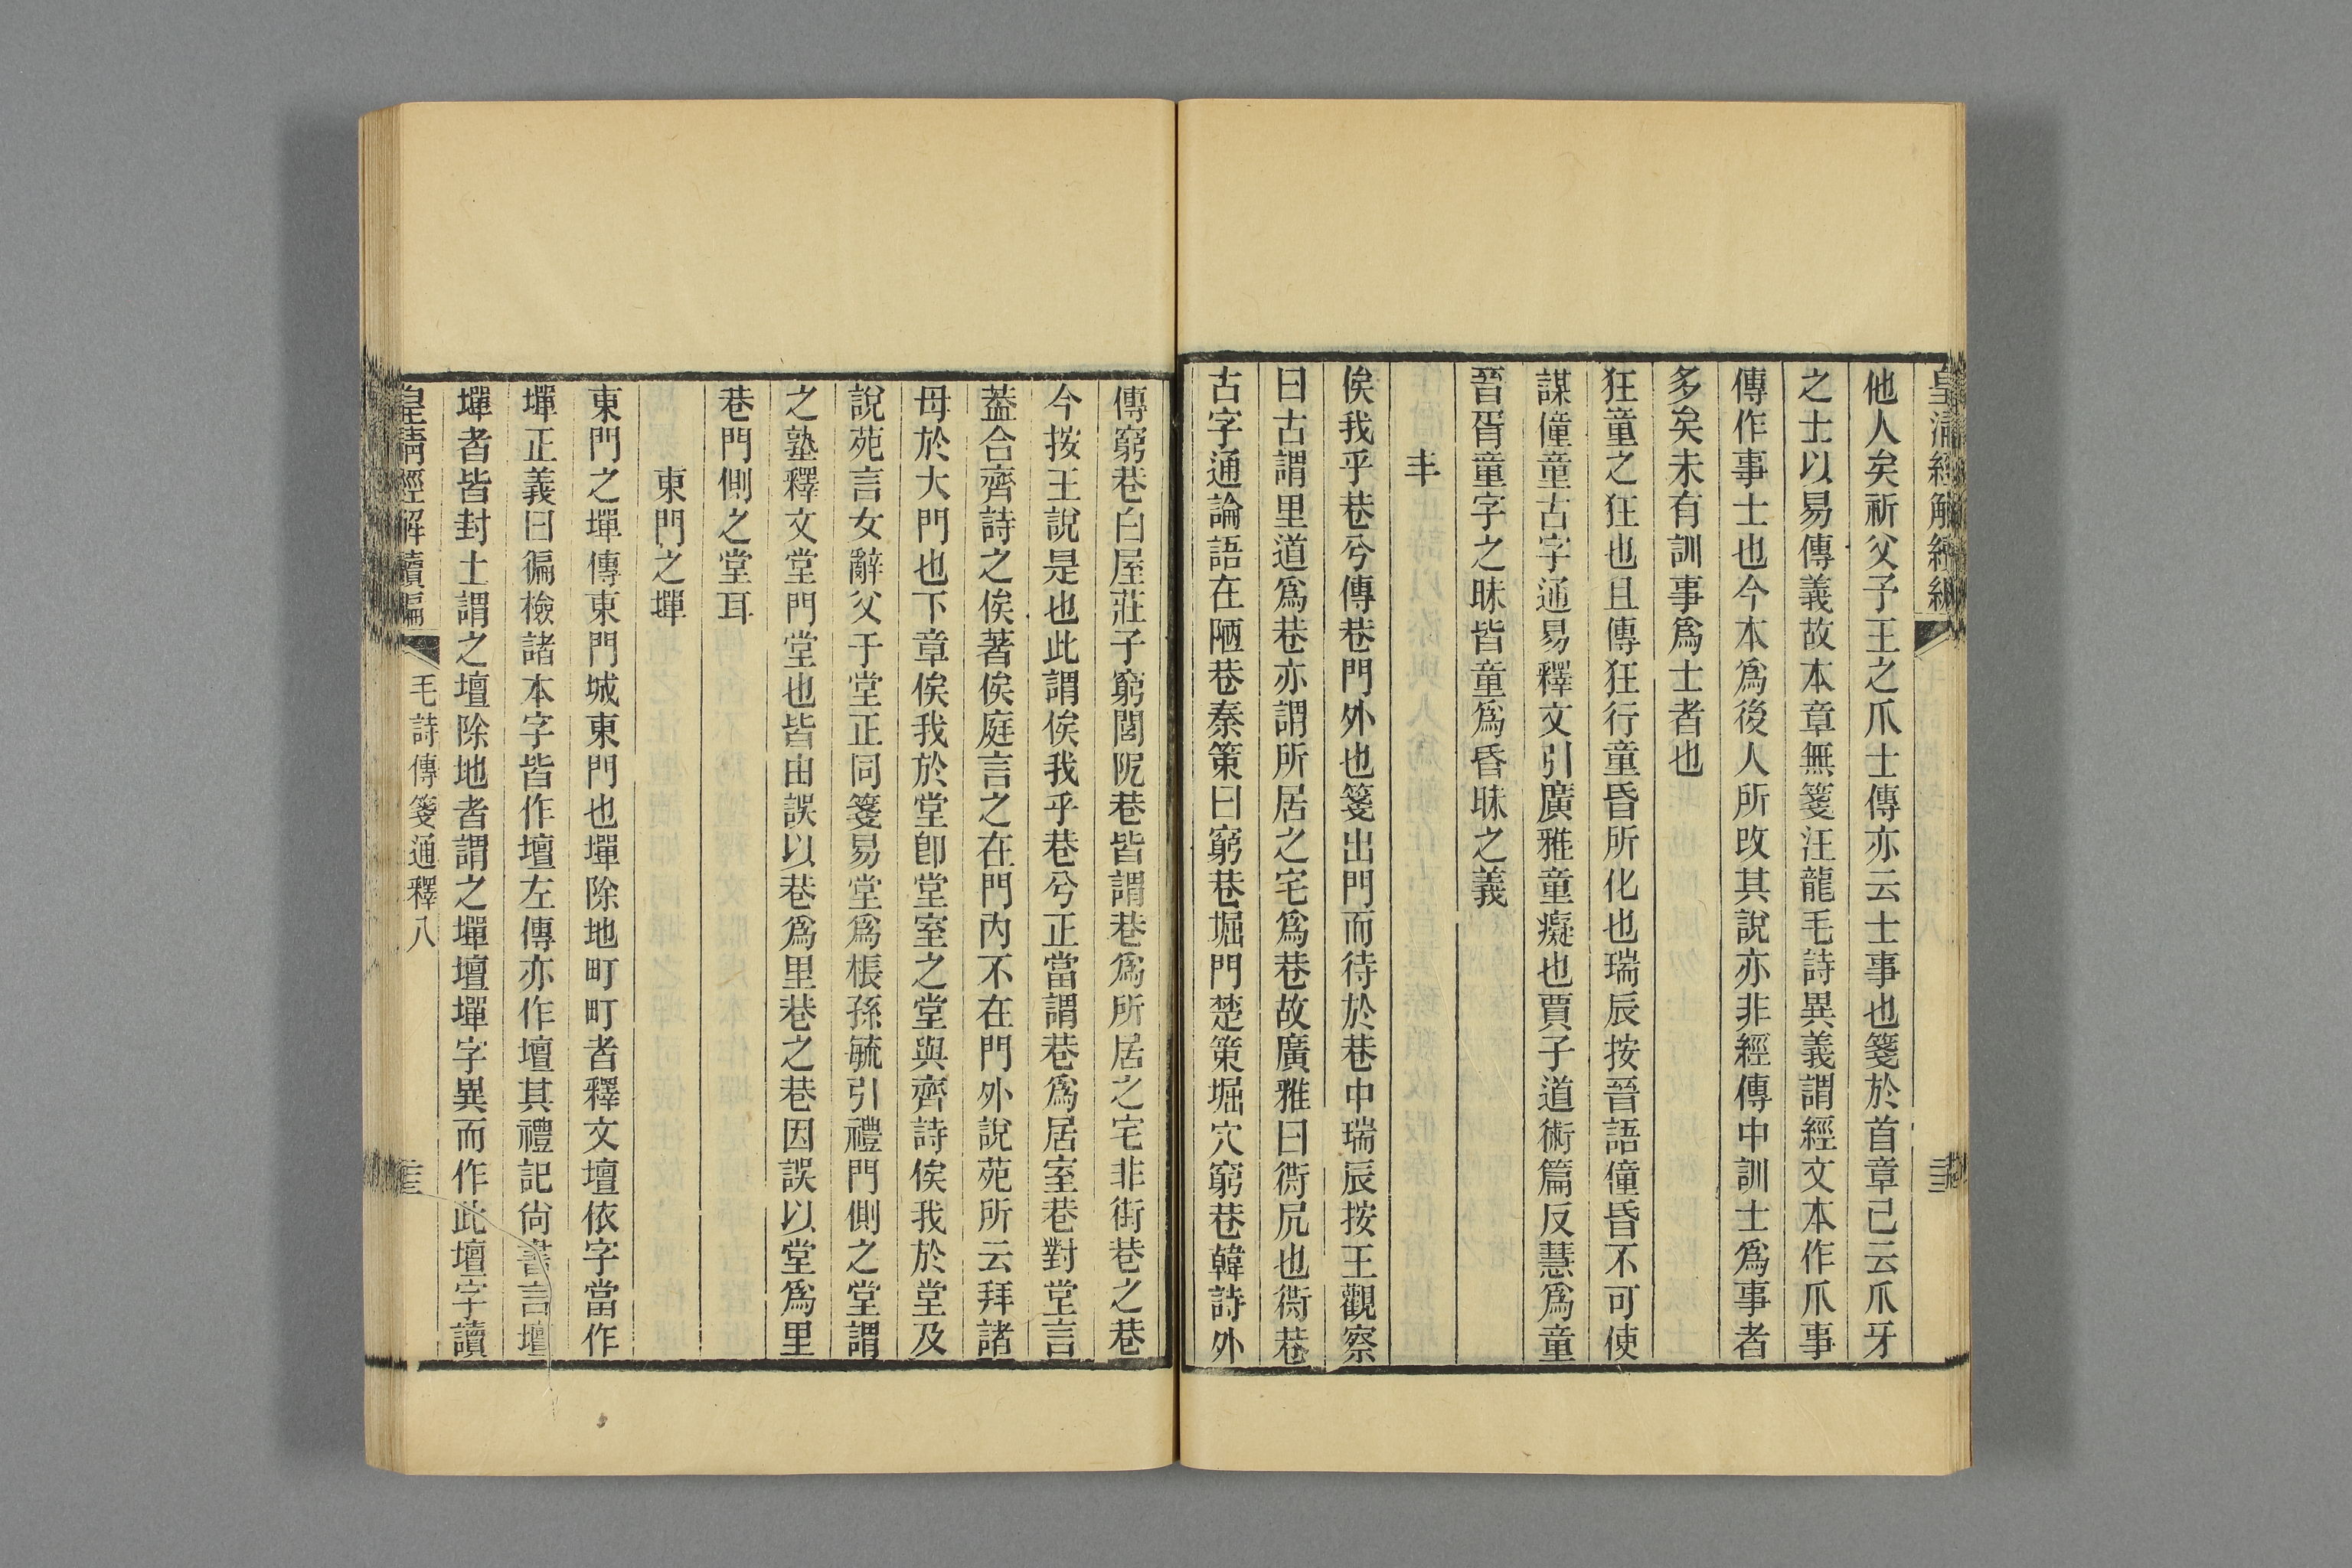 皇清經解續編
他人矣祈父予王之爪士傳亦云士事也箋於首章已云爪牙
之士以易傳義故本章無箋汪龍毛詩異義謂經文本作爪事
傳作事士也今本爲後人所改其說亦非經傳中訓士爲事者
多矣未有訓事爲士者也
狂童之狂也且傳狂行童昏所化也瑞辰按晉語僮昏不可使
謀僮童古字通易釋文引廣雅童癡也賈子道術篇反慧爲童
晉胥童字之昧皆童爲昏昧之義
丰
俟我乎巷兮傳巷門外也箋出門而待於巷中瑞辰按王觀察
曰古謂里道爲巷亦謂所居之宅爲巷故廣雅曰衖凥也衖巷
古字通論語在陋巷秦策曰窮巷堀門楚策堀穴窮巷韓詩外
傳窮巷白屋莊子窮閭阨巷皆謂巷爲所居之宅非街巷之巷
今按王說是也此謂俟我乎巷兮正當謂巷爲居室巷對堂言
蓋合齊詩之俟著俟庭言之在門內不在門外說苑所云拜諸
母於大門也下章俟我於堂卽堂室之堂與齊詩俟我於堂及
說苑言女辭父于堂正同箋易堂爲棖孫毓引禮門側之堂謂
之塾釋文堂門堂也皆由誤以巷爲里巷之巷因誤以堂爲里
巷門側之堂耳
東門之墠
東門之墠傳東門城東門也墠除地町町者釋文壇依字當作
墠正義曰徧檢諸本字皆作壇左傳亦作壇其禮記尙書言壇
墠者皆封土謂之壇除地者謂之墠壇墠字異而作此壇字讀
皇淸經解續編
毛詩傳箋通釋八